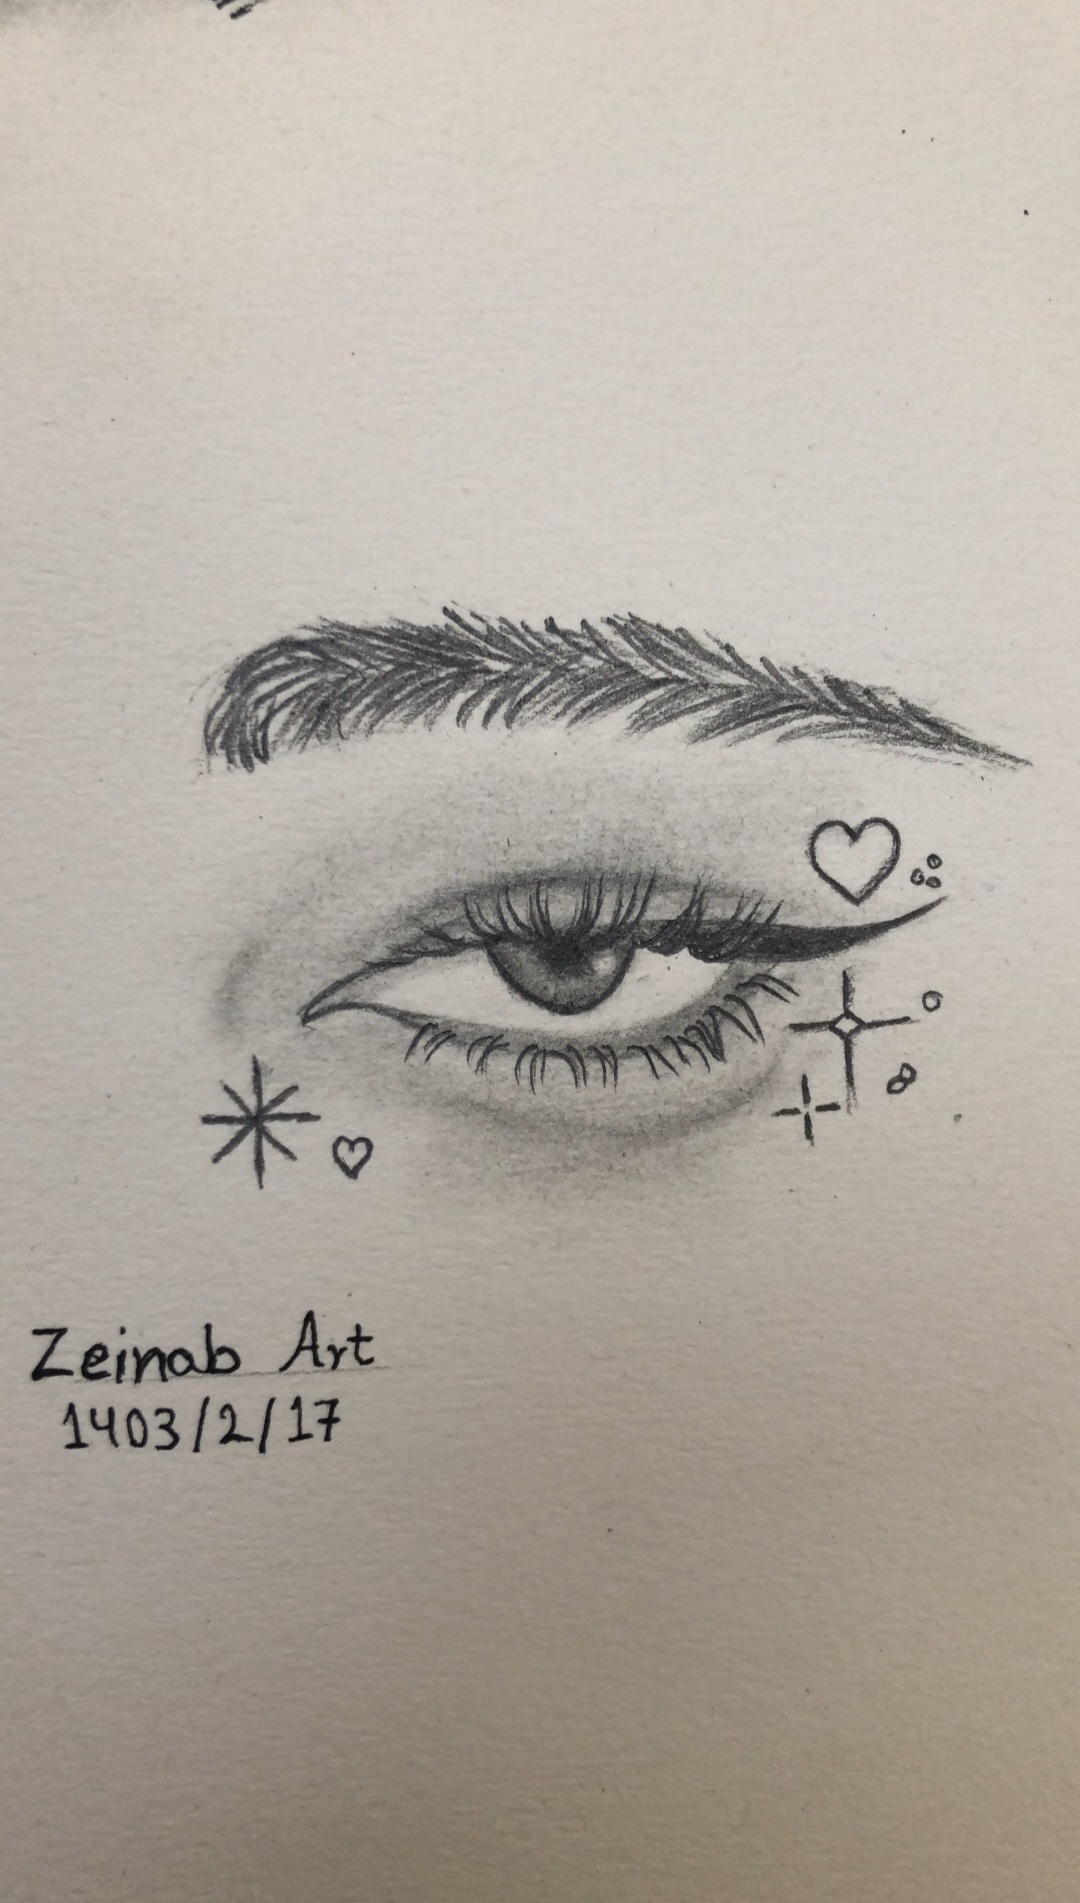 Zeinab Art
1403/2/17